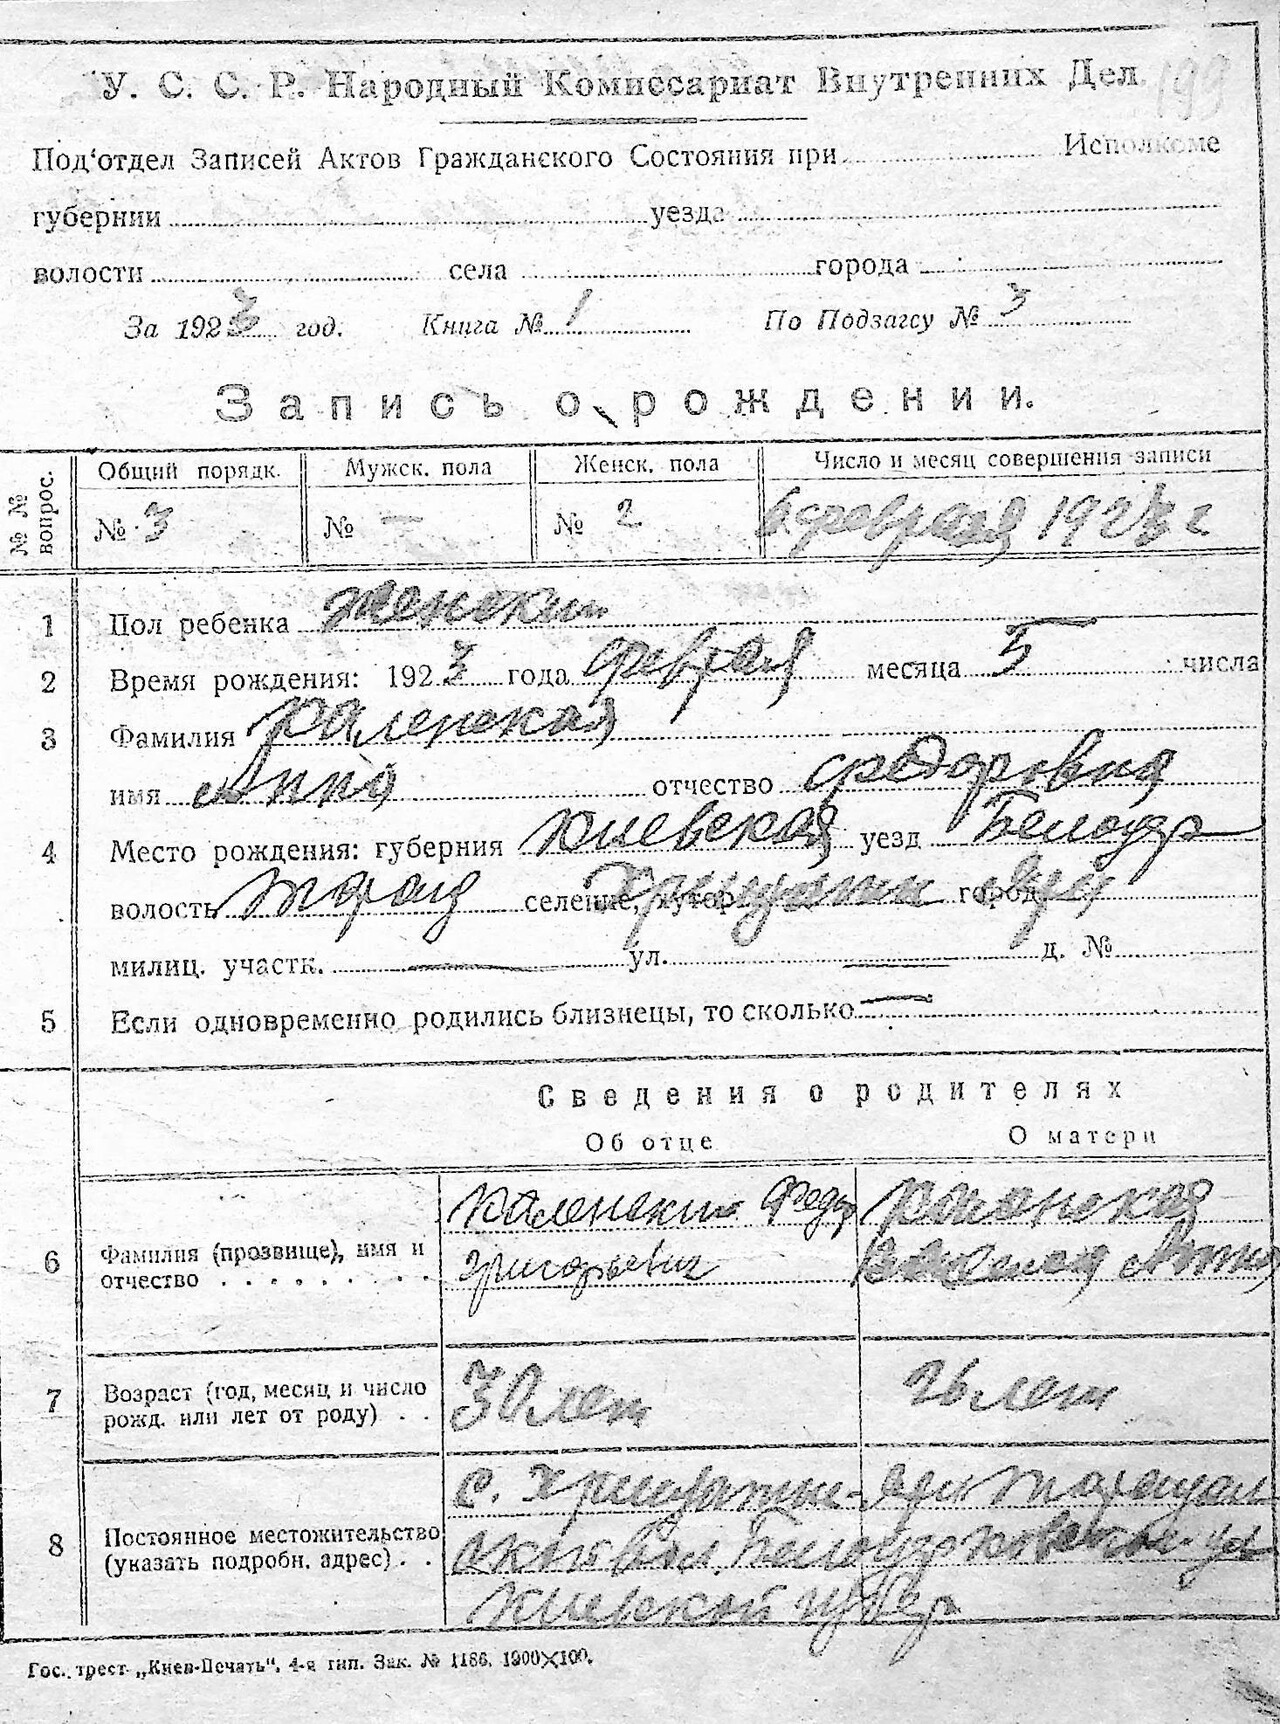 199
У. С. С. Р. Народный Комиссариат Внутренних Дел.
Под'отдел Записей Актов Гражданского Состояния при Исполкоме
губернии уезда
волости села города
За 1923 год. Книга № 1 По Подзагсу № 3
Запись о рождении.
№ № вопрос. Общий порядк. Мужск. пола Женск. пола Число и месяц совершения записи
№ 3 № — № 2 6 февраля 1923 г
1 Пол ребенка женский
2 Время рождения: 1923 года февраля месяца 5 числа
3 Фамилия Каленская
имя Анна отчество Федоровна
4 Место рождения: губерния Киевская уезд Белоцер
волость Таращ селение, хутор Хрещатый город Яр
милиц. участк. — ул. — д. №
5 Если одновременно родились близнецы, то сколько —
Сведения о родителях
Об отце О матери
6 Фамилия (прозвище), имя и отчество Каленский Федор Григорьевич Каленская Анна
7 Возраст (год, месяц и число рожд. или лет от роду) 30 лет 26 лет
8 Постоянное местожительство (указать подробн. адрес) с. Хрещатый-Яр Таращан
ской вол. Белоцерковской у
Киевской губер
Гос. трест „Киев-Печать“. 4-я тип. Зак. № 1186. 1900×100.